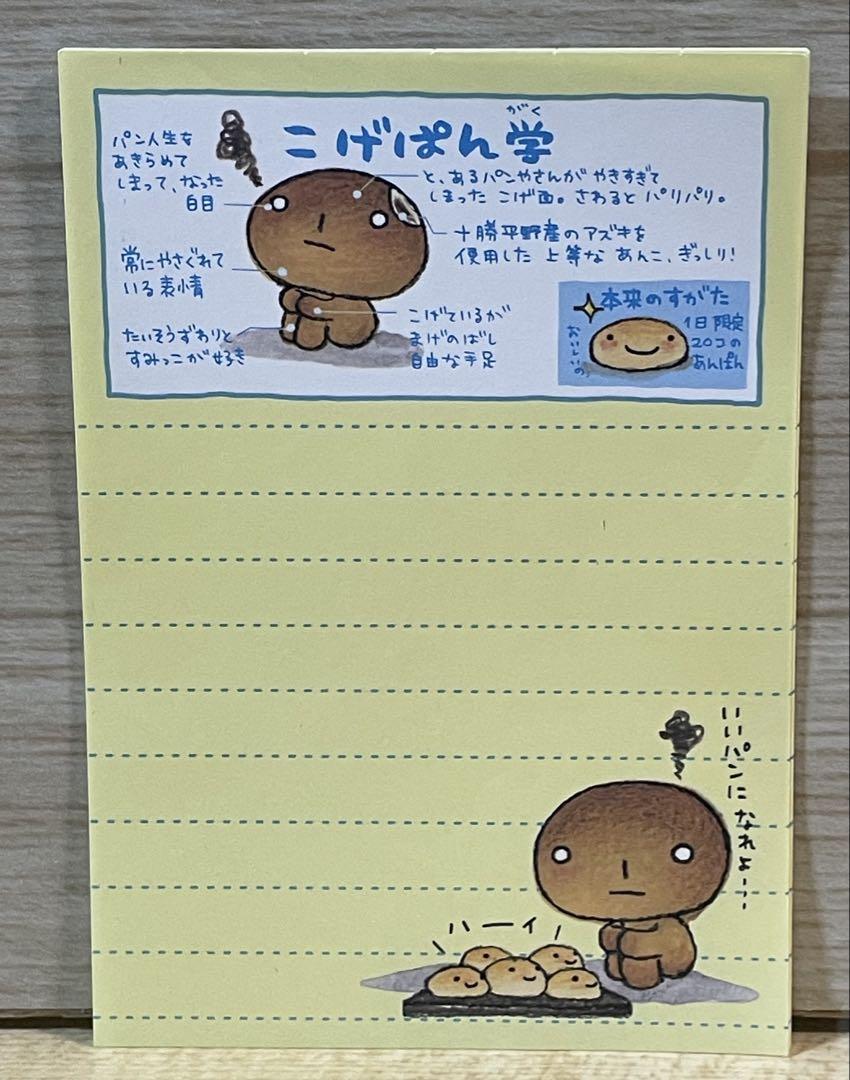 こげぱん学
がく
パン人生を
あきらめて
しまって、なった
白目
と、あるパンやさんが やきすぎて
しまった こげ面。さわると パリパリ。
十勝平野産のアズキを
使用した 上等な あんこ、ぎっしり！
常にやさぐれて
いる表情
こげているが
まげのばし
自由な手足
たいそうずわりと
すみっこが好き
本来のすがた
1日限定
20コの
あんぱん
おいしいの。
いいパンになれよー…
ハーイ